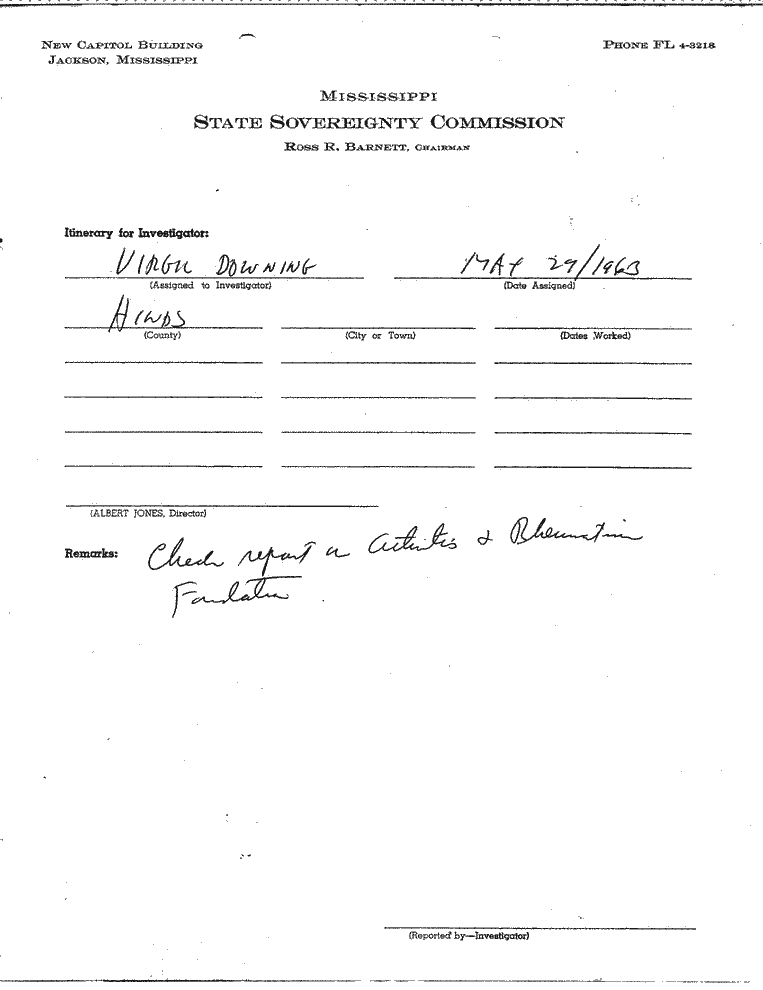 NEW CAPITOL BUILDING
JACKSON, MISSISSIPPI
PHONE FL 4-3218
MISSISSIPPI
STATE SOVEREIGNTY COMMISSION
ROSS R. BARNETT, CHAIRMAN
Itinerary for Investigator:
VIRGIL DOWNING MAY 29/1963
(Assigned to Investigator) (Date Assigned)
HINDS
(County) (City or Town) (Dates Worked)
(ALBERT JONES, Director)
Remarks: Check report on & Rheumatism
Foundation
(Reported by—Investigator)